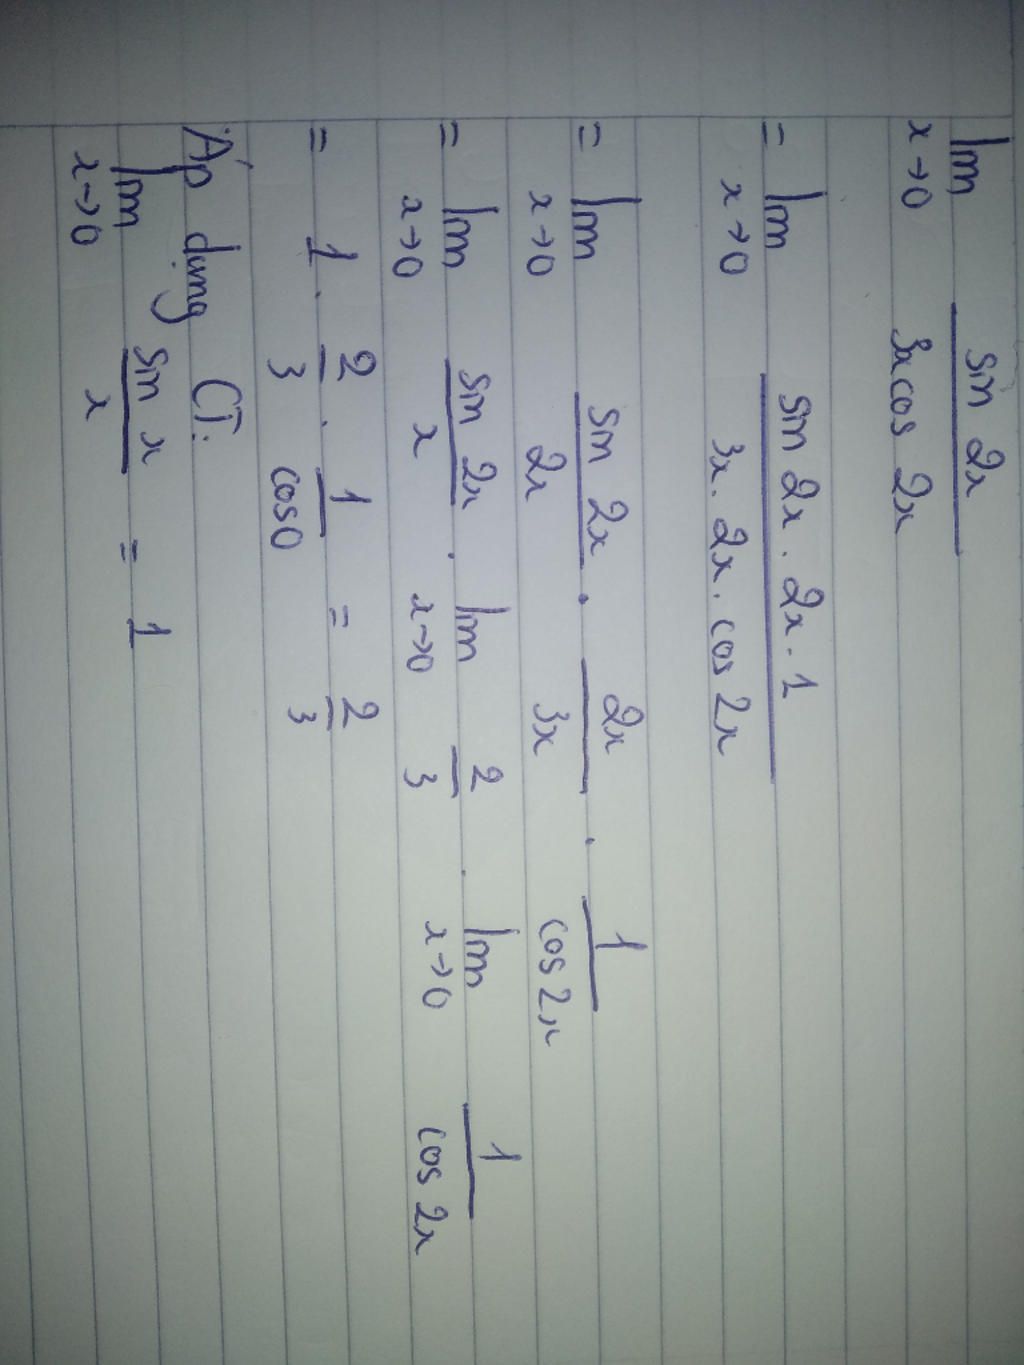 lim x→0 sin 2x / 3x cos 2x
= lim x→0 sin 2x . 2x . 1 / 3x . 2x . cos 2x
= lim x→0 sin 2x / 2x . 2x / 3x . 1 / cos 2x
= lim x→0 sin 2x / x . lim x→0 2 / 3 . lim x→0 1 / cos 2x
= 1 . 2 / 3 . 1 / cos 0 = 2 / 3
Áp dụng CT:
lim x→0 sin x / x = 1